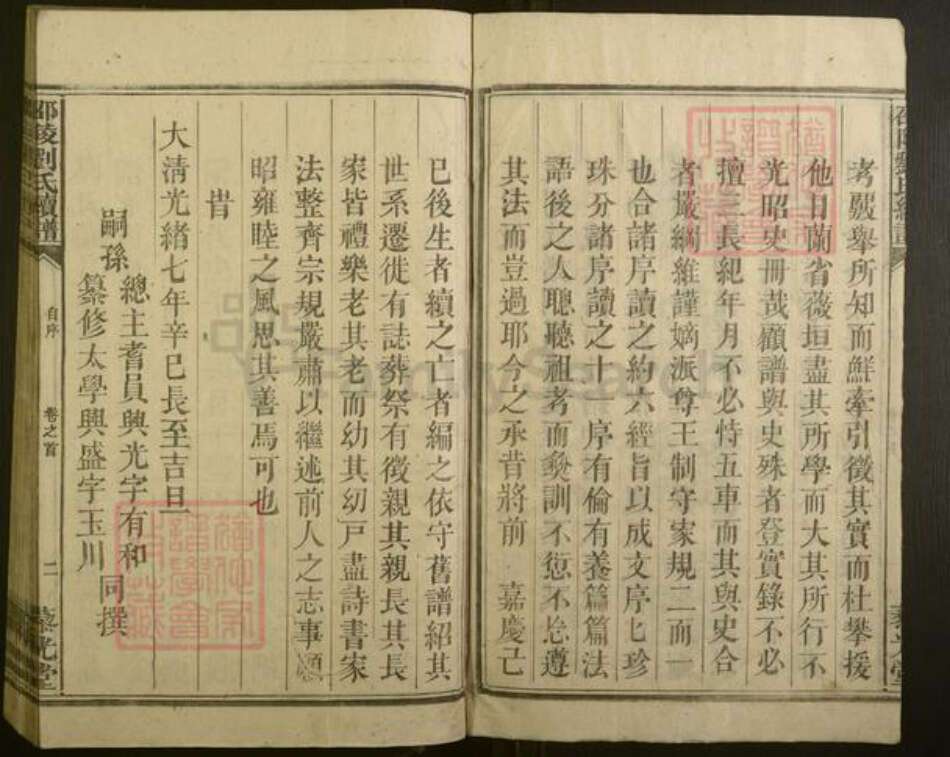 考覈舉所知而鮮牽引徵其實而杜攀援
他日蘭省薇垣盡其所學而大其所行不
光昭史冊哉顧譜與史殊者登實錄不必
擅三長紀年月不必恃五車而其與史合
者嚴綱維謹嫡派尊王制守家規二而一
也合諸序讀之約六經旨以成文序匕珍
珠分諸序讀之十一序有倫有養篇篇法
語後之人聰聽祖考而彝訓不愆不忘遵
其法而豈過耶今之承昔將前 嘉慶己
巳後生者續之亡者編之依守舊譜紹其
世系遷徙有誌葬祭有徵親其親長其長
家皆禮樂老其老而幼其幼戸盡詩書家
法整齊宗規嚴肅以繼述前人之志事顯
昭雍睦之風思其善焉可也
旹
大清光緒七年辛巳長至吉旦
嗣孫
總主耆員興光字有和
纂修太學興盛字玉川
同撰
邵陵劉氏續譜
自序
卷之首
二
藜光堂